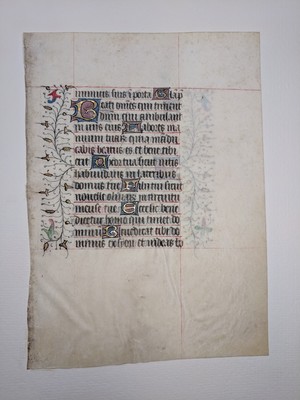 inimicis suis ī porta Gl̄a p
Beati om̄es qui timent
dominū qui ambulant
in viis eius Labores ma
nuum tuarū quia mādu
cabis beatus es et bene tibi
erit Uxor tua sicut vitis
habundans in lateribus
domus tue Filii tui sicut
novelle olivarū in circuitu
mense tue Ecce sic bene
dicetur homo qui timet do
minū Benedicat tibi do
minus ex syon et videas bo